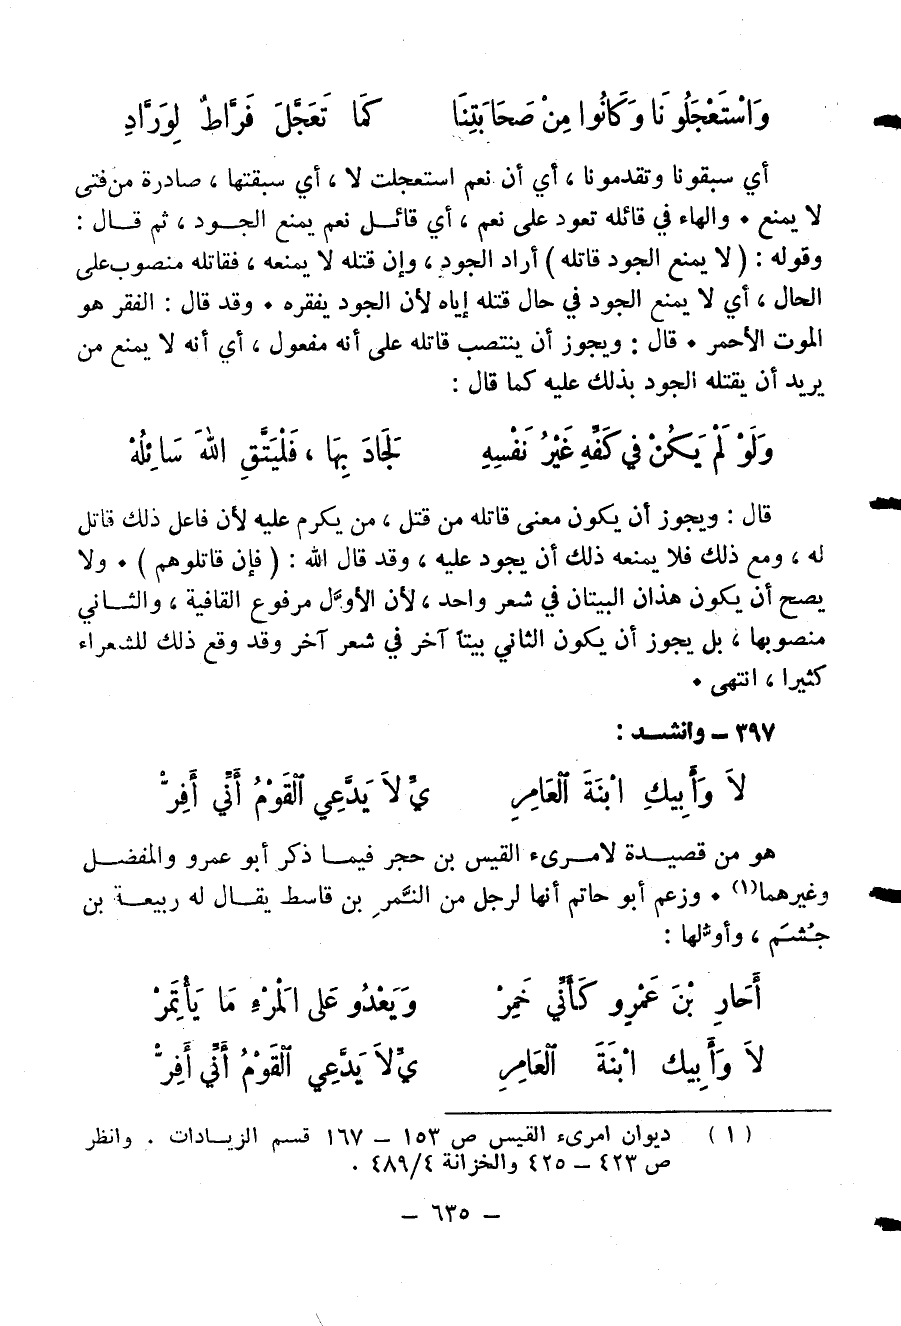 وَاسْتَعْجَلُونَا وَكَانُوا مِنْ صَحَابَتِنَا كَمَا تَعَجَّلَ فَرَّاطٌ لِوَرَّادِ
أي سبقونا وتقدمونا ، أي أن نعم استعجلت لا ، أي سبقتها ، صادرة من فتى
لا يمنع • والهاء في قائله تعود على نعم ، أي قائــل نعم يمنع الجــود ، ثم قــال :
وقوله : ( لا يمنع الجود قاتله ) أراد الجود ، وإن قتله لا يمنعه ، فقاتله منصوب على
الحال ، أي لا يمنع الجود في حال قتله إياه لأن الجود يفقره • وقد قال : الفقر هو
الموت الأحمر • قال : ويجوز أن ينتصب قاتله على أنه مفعول ، أي أنه لا يمنع من
يريد أن يقتله الجود بذلك عليه كما قال :
وَلَوْ لَمْ يَكُنْ في كَفِّهِ غَيْرُ نَفْسِهِ لَجَادَ بِهَا ، فَلْيَتَّقِ اللهَ سَائِلُهْ
قال : ويجوز أن يكون معنى قاتله من قتل ، من يكرم عليه لأن فاعل ذلك قاتل
له ، ومع ذلك فلا يمنعه ذلك أن يجود عليه ، وقد قال الله : ( فإن قاتلوهم ) • ولا
يصح أن يكون هذان البيتان في شعر واحد ، لأن الأوّل مرفوع القافية ، والثــاني
منصوبها ، بل يجوز أن يكون الثاني بيتاً آخر في شعر آخر وقد وقع ذلك للشعراء
كثيرا ، انتهى •
٣٩٧ – وانشــد :
لاَ وَأَبِيكِ ابْنَةَ الْعَامِرِ يِّ لاَ يَدَّعِي الْقَوْمُ أَنِّي أَفِرّْ
هو من قصيــدة لامرىء القيس بن حجر فيمــا ذكر أبو عمرو والمفضــل
وغيرهما(١) • وزعم أبو حاتم أنها لرجل من النَّمِر بن قاسط يقــال له ربيعــة بن
جُشَم ، وأوّلها :
أَحَارِ بْنَ عَمْرٍو كَأَنِّي خَمِرْ وَيَعْدُو عَلى الْمَرْءِ مَا يَأْتَمِرْ
لاَ وَأَبِيك ابْنَةَ الْعَامِرِ يِّ لاَ يَدَّعِي الْقَوْمُ أَنِّي أَفِرّْ
( ١ ) ديوان امرىء القيس ص ١٥٣ – ١٦٧ قسم الزيــادات . وانظر
ص ٤٢٣ – ٤٢٥ والخزانة ٤٨٩/٤ .
– ٦٣٥ –